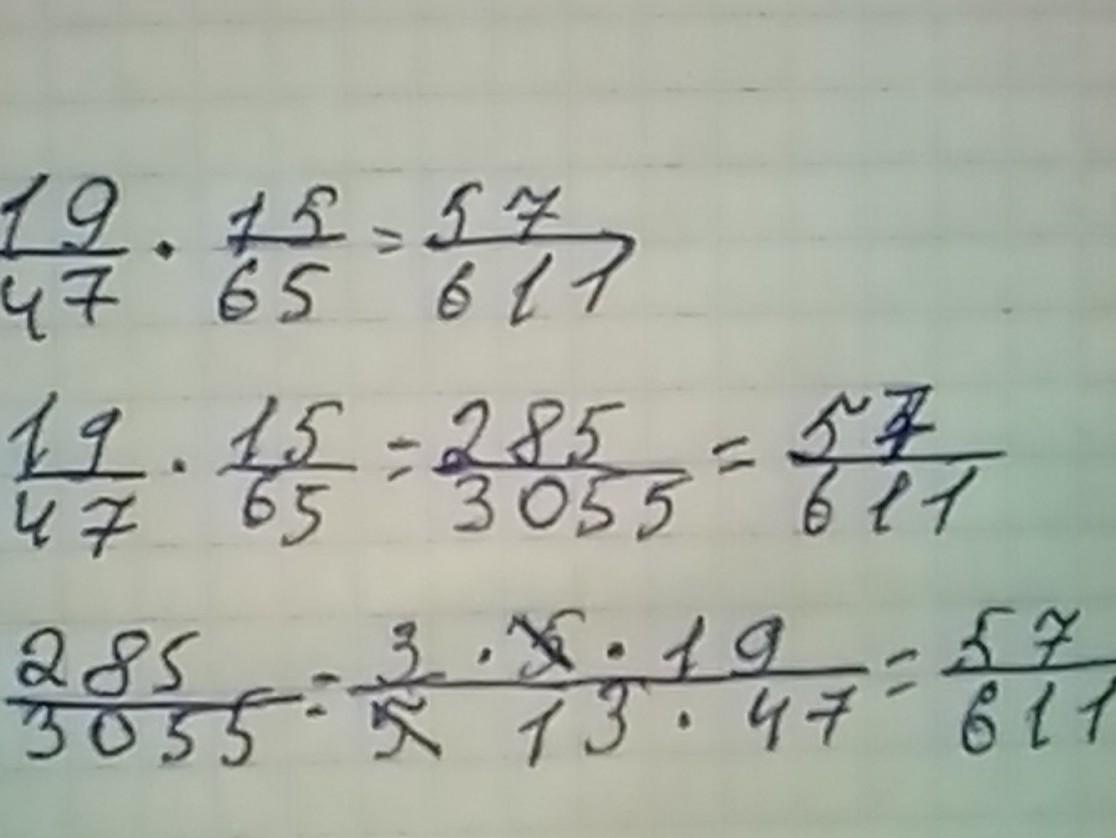 19/47 · 15/65 = 57/611
19/47 · 15/65 = 285/3055 = 57/611
285/3055 = 3 · 5 · 19/5 13 · 47 = 57/611